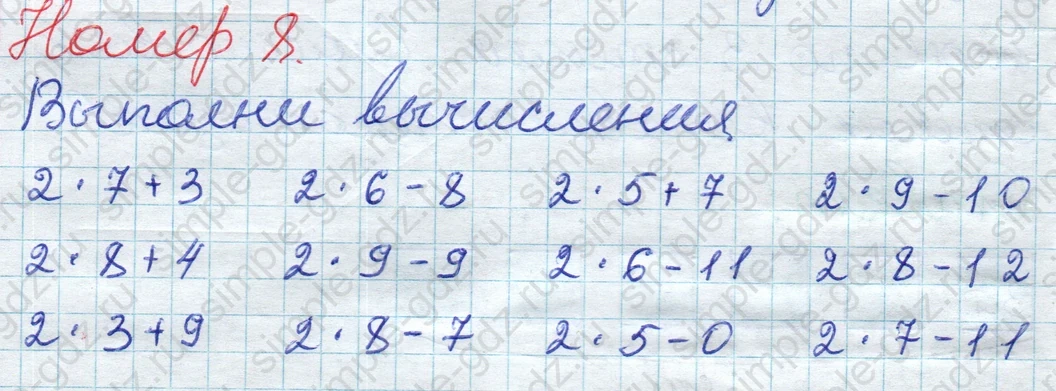 Номер 8.
Выполни вычисления
2 · 7 + 3 2 · 6 - 8 2 · 5 + 7 2 · 9 - 10
2 · 8 + 4 2 · 9 - 9 2 · 6 - 11 2 · 8 - 12
2 · 3 + 9 2 · 8 - 7 2 · 5 - 0 2 · 7 - 11
simple-gdz.ru